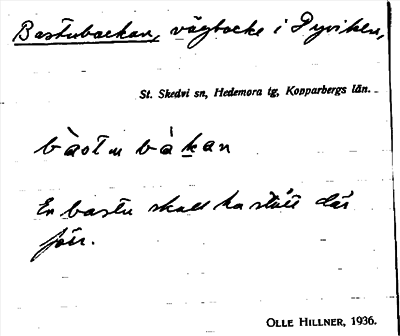 Bastubackan, vägbacke i Dyviken,
St. Skedvi sn, Hedemora tg, Kopparbergs län.
bàstu bàkan
En bastu skall ha stått där
förr.
OLLE HILLNER, 1936.